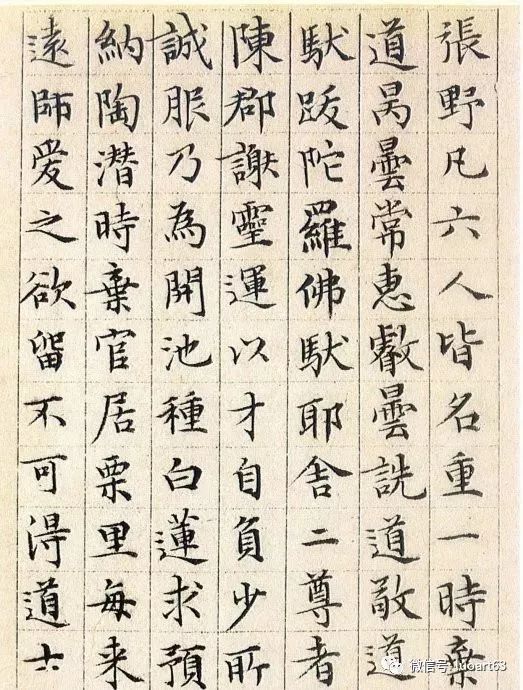 張野凡六人皆名重一時棄
道昺曇常惠叡曇詵道敬道
馱跋陀羅佛馱耶舍二尊者
陳郡謝靈運以才自負少所
誠服乃為開池種白蓮求預
納陶潛時棄官居栗里每来
遠師愛之欲留不可得道士
微信号: luoart63